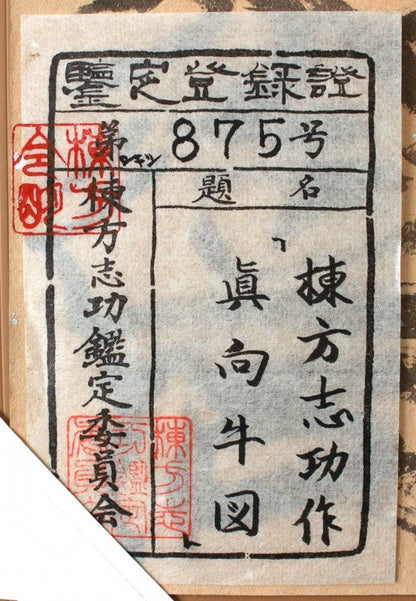 鑒定登録證
第 875号
題名
棟方志功作
「眞向牛図」
棟方志功鑑定委員会